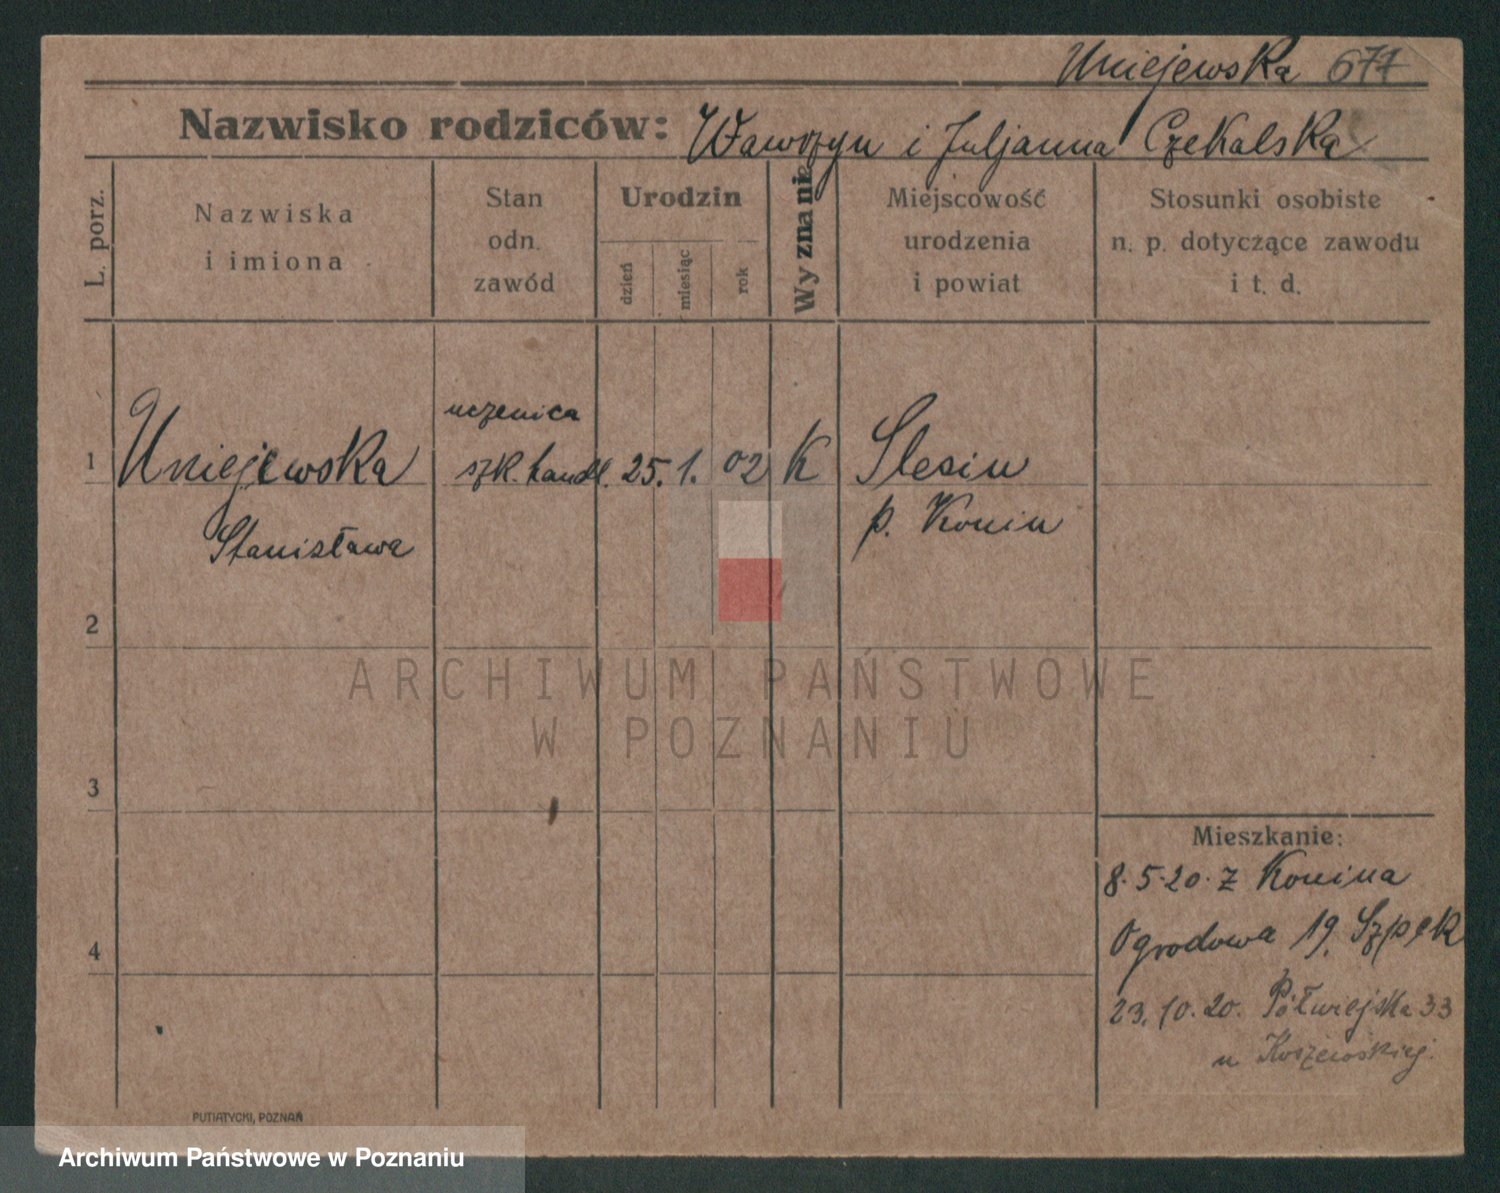 Uniejewska 677
Nazwisko rodziców: Wawrzyn i Juljanna Czekalska
L. porz.
Nazwiska
i imiona
Stan
odn.
zawód
Urodzin
dzień
miesiąc
rok
Wyznanie
Miejscowość
urodzenia
i powiat
Stosunki osobiste
n. p. dotyczące zawodu
i t. d.
1 Uniejewska
Stanisława
uczenica
szk. handl. 25. 1. 02 K
Slesin
p. Konin
2
3
4
ARCHIWUM PAŃSTWOWE
W POZNANIU
Mieszkanie:
8.5.20. z Konina
Ogrodowa 19. Szpęk
23.10.20. Półwiejska 33
u
PUTIATYCKI, POZNAŃ
Archiwum Państwowe w Poznaniu